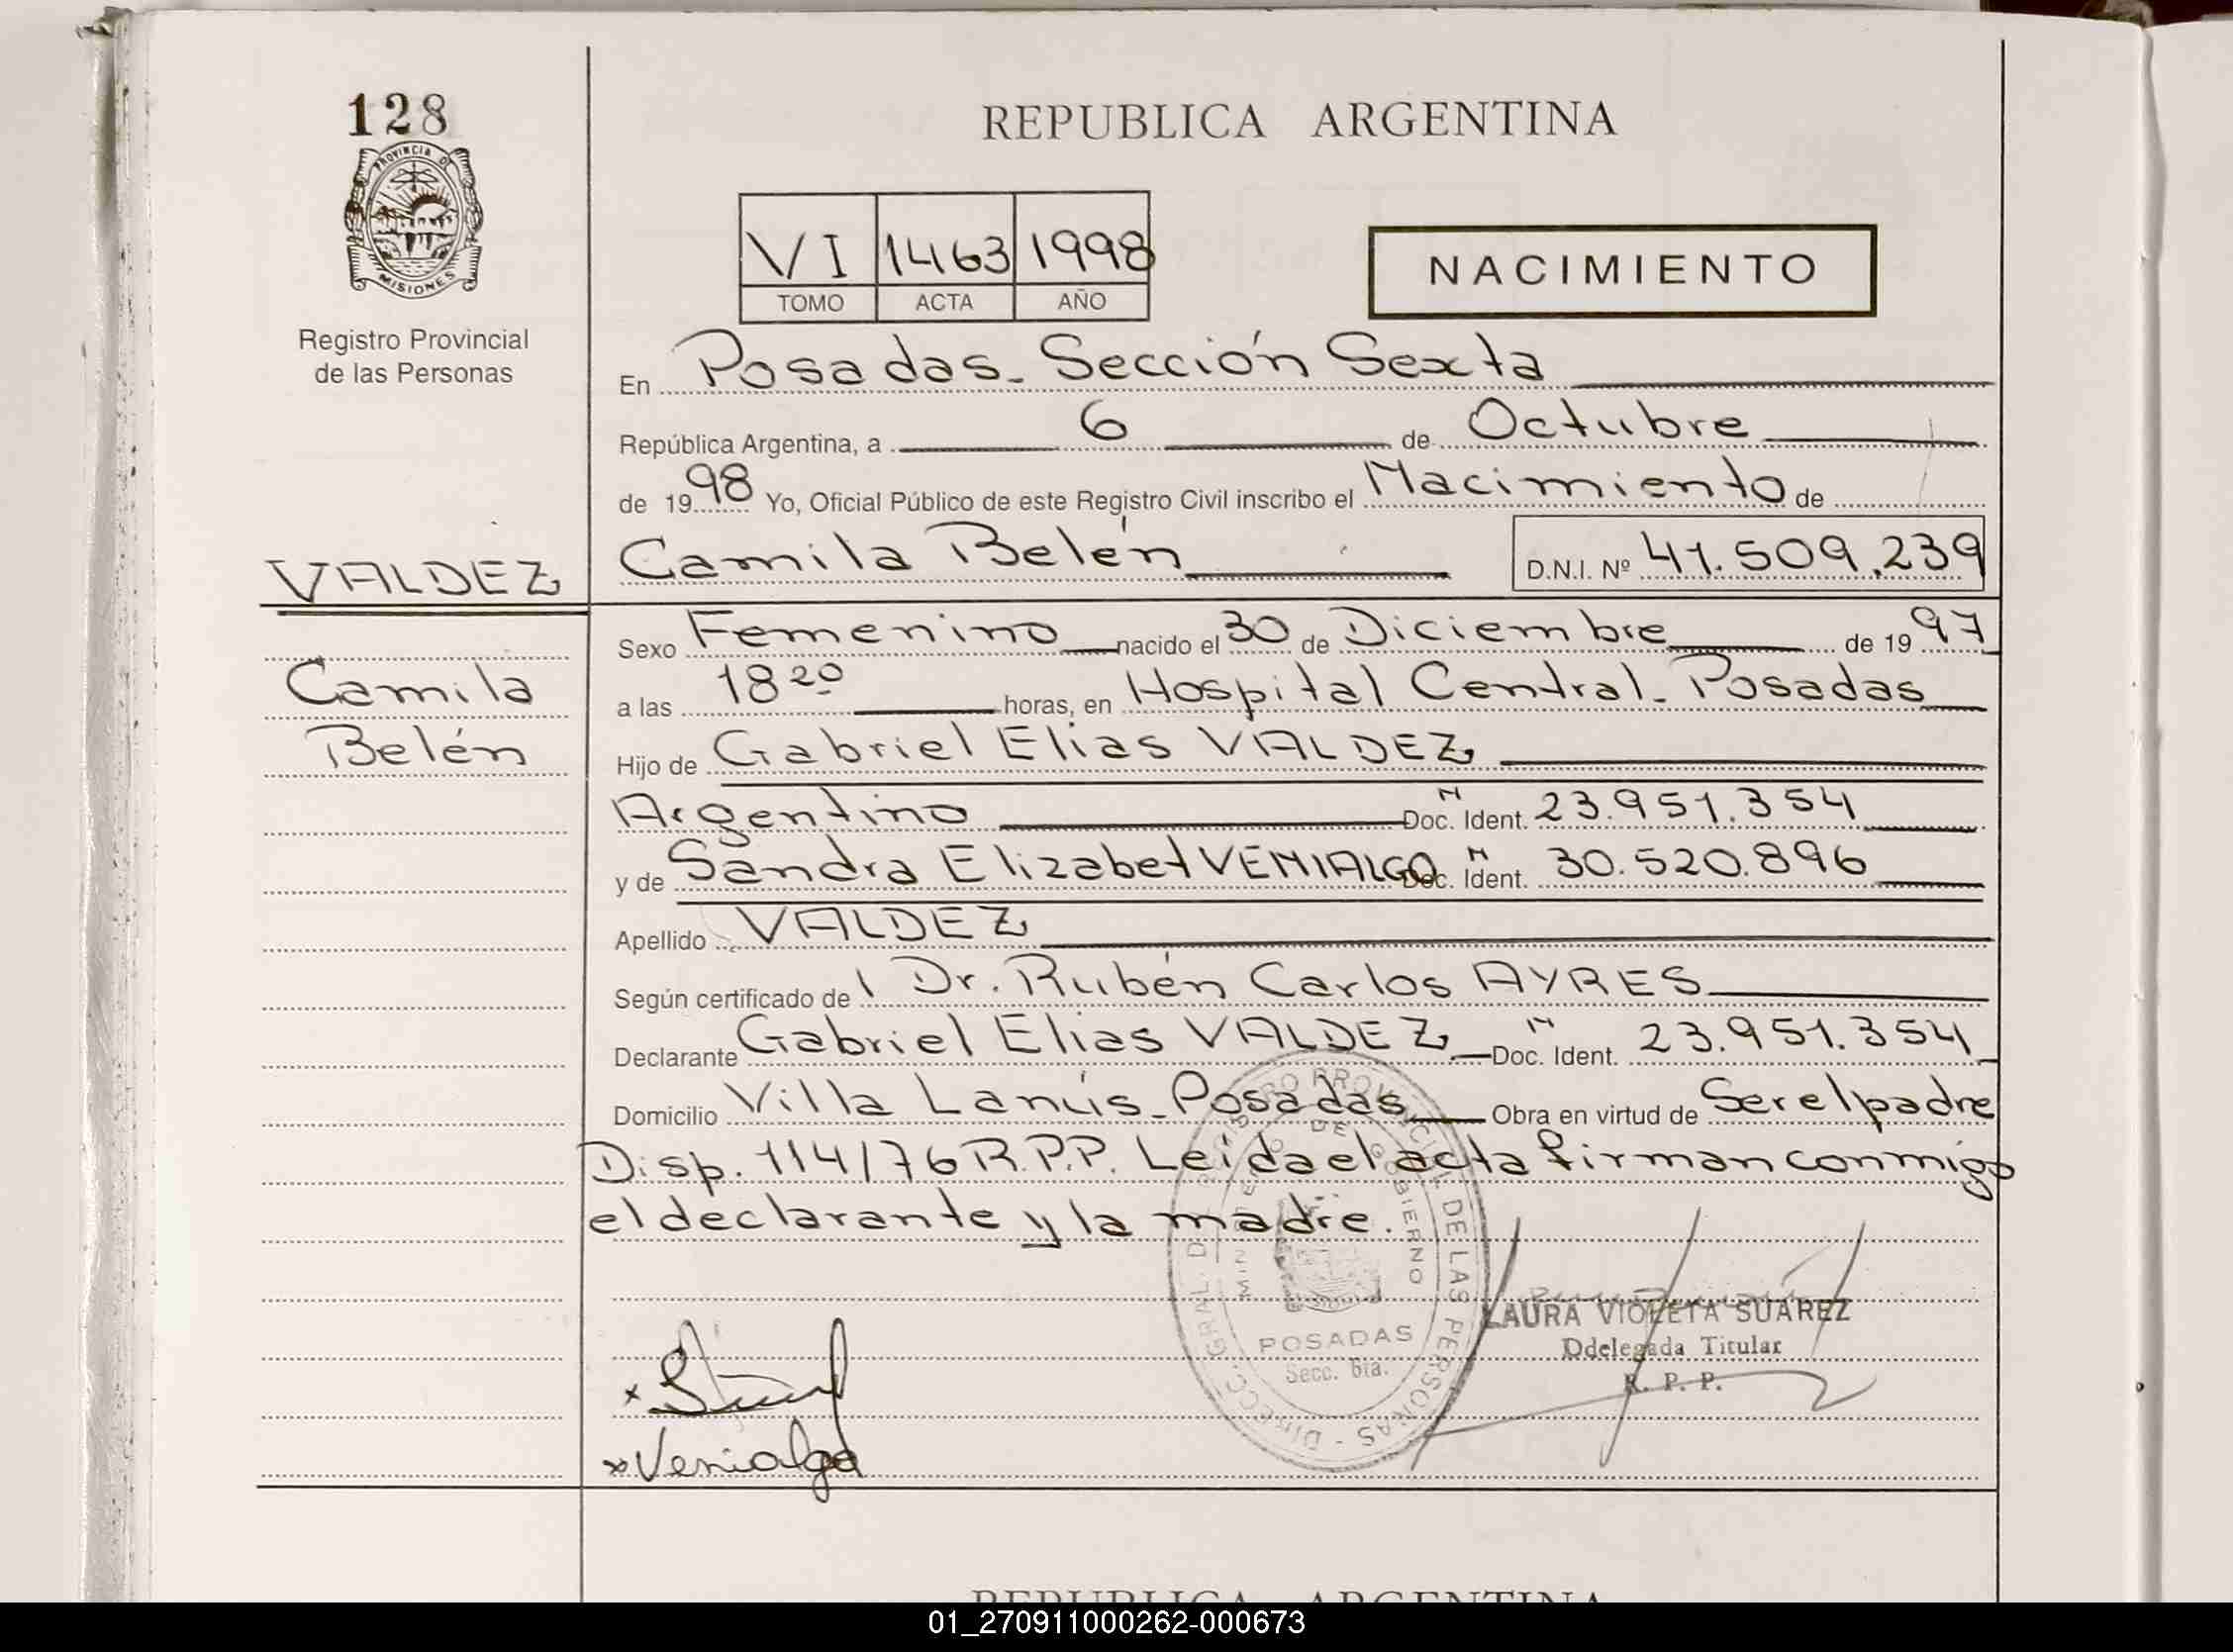 128
REPUBLICA ARGENTINA
PROVINCIA DE
MISIONES
VI 1463 1998
TOMO ACTA AÑO
NACIMIENTO
Registro Provincial
de las Personas
En Posadas - Sección Sexta
República Argentina, a 6 de Octubre
de 1998 Yo, Oficial Público de este Registro Civil inscribo el Nacimiento de
VALDEZ
Camila Belén
D.N.I. Nº 41.509.239
Camila
Belén
Sexo Femenino nacido el 30 de Diciembre de 1997
a las 18 20 horas, en Hospital Central - Posadas
Hijo de Gabriel Elias VALDEZ
Argentino Doc. N Ident. 23.951.354
y de Sandra Elizabet VENIALGO Doc. N Ident. 30.520.896
Apellido VALDEZ
Según certificado del Dr. Rubén Carlos AYRES
Declarante Gabriel Elias VALDEZ Doc. N Ident. 23.951.354
Domicilio Villa Lanús - Posadas Obra en virtud de Ser el padre
Disp. 114/76 R.P.P. Leída el acta firman conmigo
el declarante y la madre.
DIRECC. GRAL. DEL REGISTRO PROVINCIAL DE LAS PERSONAS
MINISTERIO DE GOBIERNO
POSADAS
Secc. 6ta.
LAURA VIOLETA SUAREZ
Ddelegada Titular
R. P. P.
x
x Venialgo
REPUBLICA ARGENTINA
01_270911000262-000673